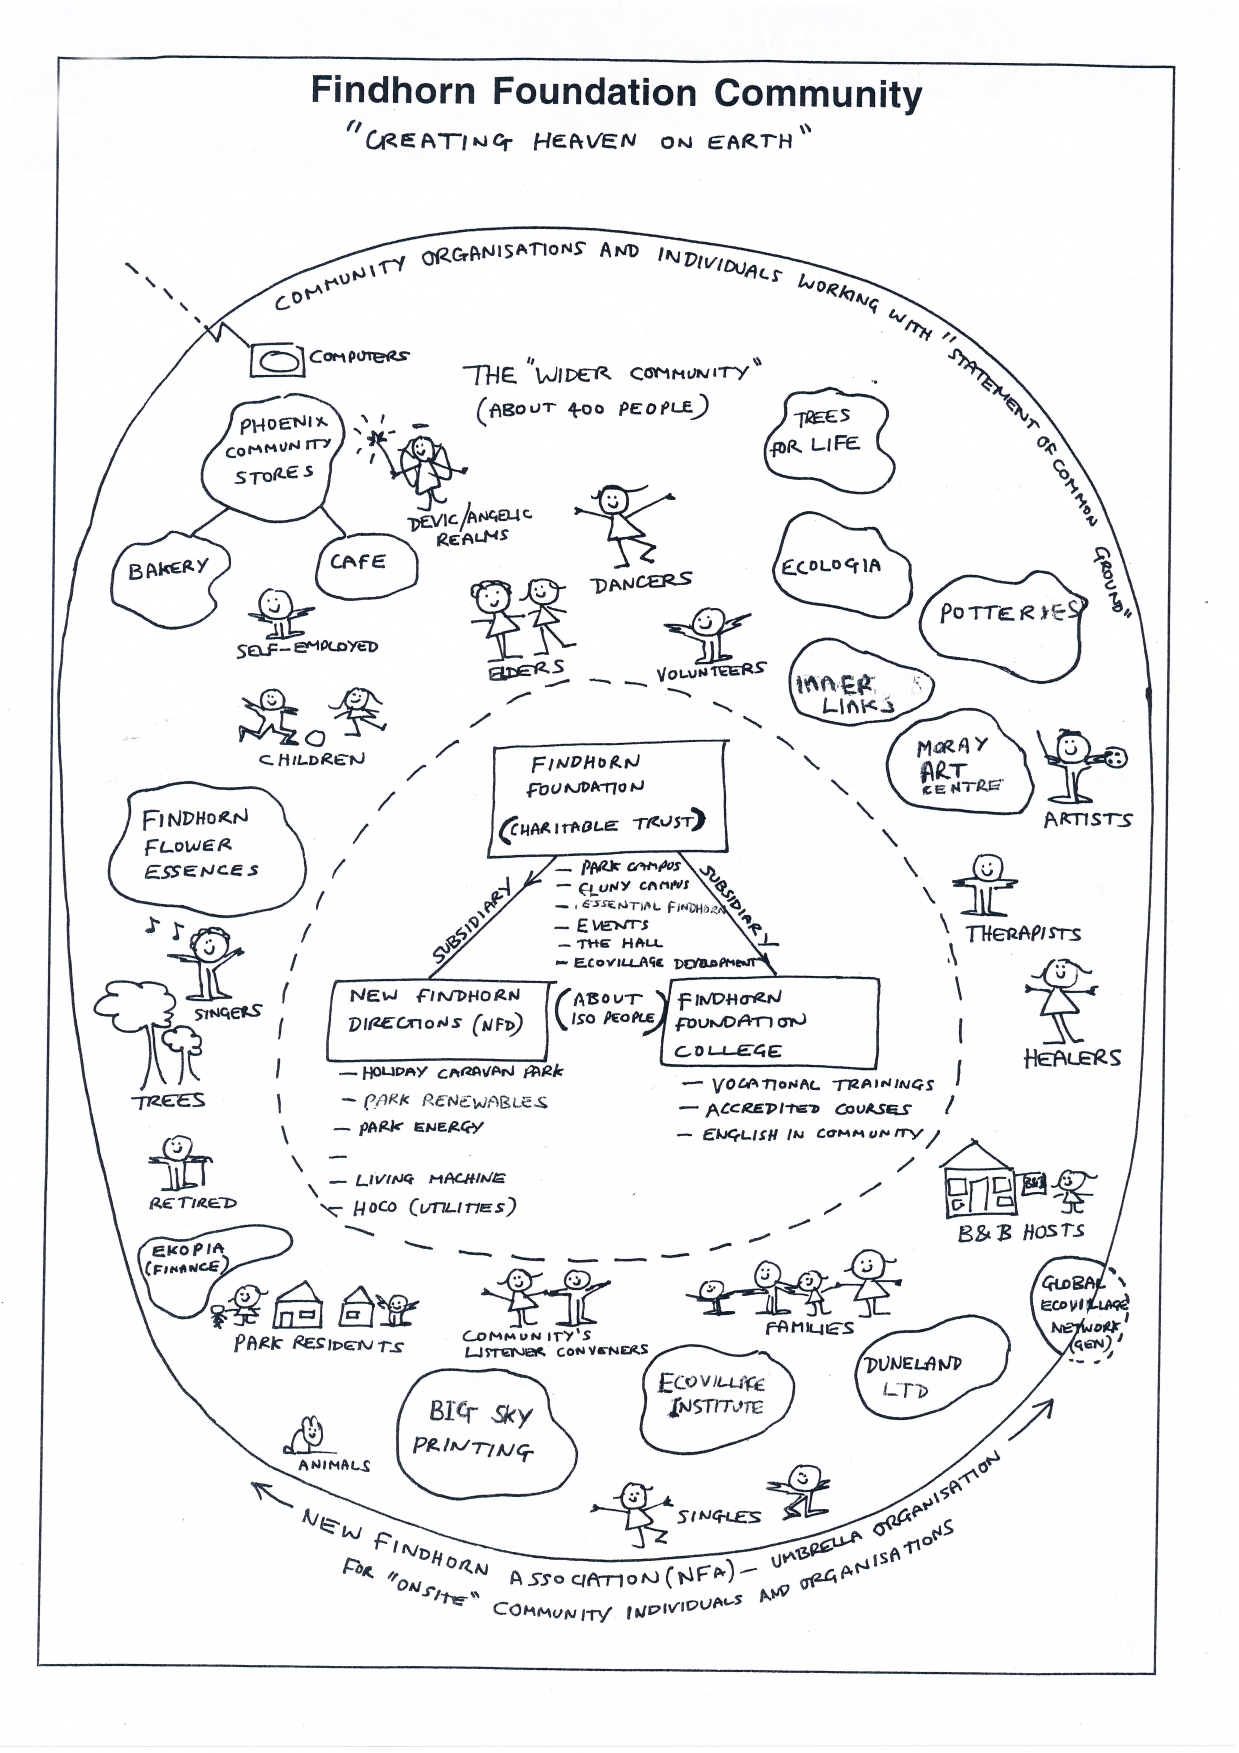 Findhorn Foundation Community
"CREATING HEAVEN ON EARTH"
COMMUNITY ORGANISATIONS AND INDIVIDUALS WORKING WITH "STATEMENT OF COMMON GROUND"
COMPUTERS
THE "WIDER COMMUNITY"
(ABOUT 400 PEOPLE)
PHOENIX
COMMUNITY
STORES
TREES
FOR LIFE
DEVIC/ANGELIC
REALMS
BAKERY
CAFE
DANCERS
ECOLOGIA
POTTERIES
SELF-EMPLOYED
ELDERS
VOLUNTEERS
INNER
LINKS
CHILDREN
MORAY
ART
CENTRE
ARTISTS
FINDHORN
FOUNDATION
(CHARITABLE TRUST)
FINDHORN
FLOWER
ESSENCES
SUBSIDIARY
SUBSIDIARY
— PARK CAMPUS
— CLUNY CAMPUS
— ESSENTIAL FINDHORN
— EVENTS
— THE HALL
— ECOVILLAGE DEVELOPMENT
THERAPISTS
SINGERS
NEW FINDHORN
DIRECTIONS (NFD)
(ABOUT
150 PEOPLE)
FINDHORN
FOUNDATION
COLLEGE
HEALERS
TREES
— HOLIDAY CARAVAN PARK
— PARK RENEWABLES
— PARK ENERGY
—
— LIVING MACHINE
— HOCO (UTILITIES)
— VOCATIONAL TRAININGS
— ACCREDITED COURSES
— ENGLISH IN COMMUNITY
RETIRED
B&B
B&B HOSTS
EKOPIA
(FINANCE)
PARK RESIDENTS
COMMUNITY'S
LISTENER CONVENERS
FAMILIES
GLOBAL
ECOVILLAGE
NETWORK
(GEN)
DUNELAND
LTD
ECOVILLAGE
INSTITUTE
BIG SKY
PRINTING
ANIMALS
SINGLES
NEW FINDHORN ASSOCIATION (NFA) — UMBRELLA ORGANISATION
FOR "ONSITE" COMMUNITY INDIVIDUALS AND ORGANISATIONS